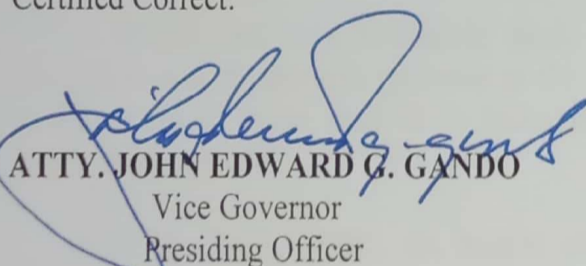 Certified Correct:
ATTY. JOHN EDWARD G. GANDO
Vice Governor
Presiding Officer